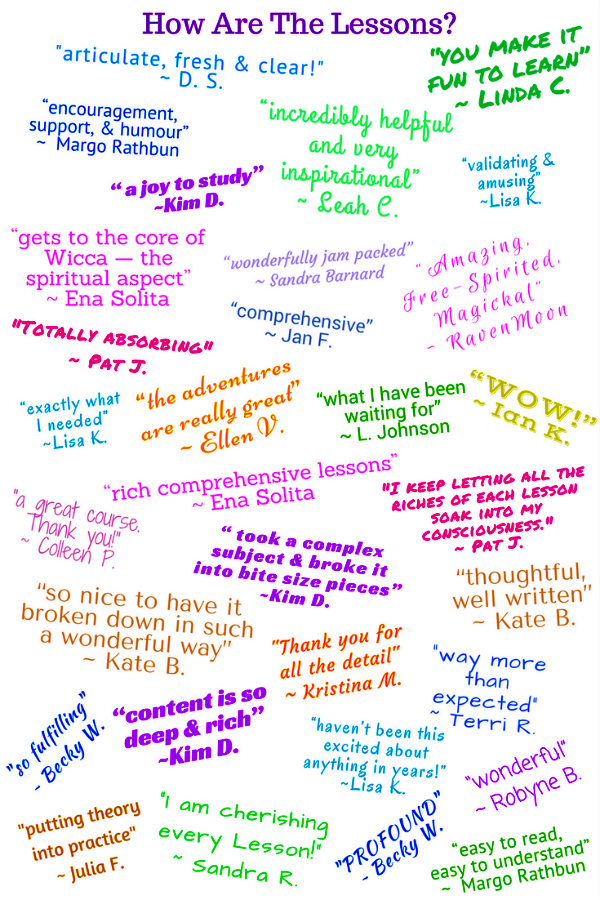 How Are The Lessons?
"articulate, fresh & clear!"
~ D. S.
"YOU MAKE IT
FUN TO LEARN"
~ LINDA C.
"encouragement,
support, & humour"
~ Margo Rathbun
"incredibly helpful
and very
inspirational"
~ Leah C.
"validating &
amusing"
~Lisa K.
"a joy to study"
~Kim D.
"gets to the core of
Wicca — the
spiritual aspect"
~ Ena Solita
"wonderfully jam packed"
~ Sandra Barnard
"Amazing,
Free-Spirited,
Magickal"
~ RavenMoon
"comprehensive"
~ Jan F.
"TOTALLY ABSORBING"
~ PAT J.
"exactly what
I needed"
~Lisa K.
"the adventures
are really great"
~ Ellen V.
"what I have been
waiting for"
~ L. Johnson
"WOW!"
~ Ian K.
"rich comprehensive lessons"
~ Ena Solita
"I KEEP LETTING ALL THE
RICHES OF EACH LESSON
SOAK INTO MY
CONSCIOUSNESS."
~ PAT J.
"a great course.
Thank you!"
~ Colleen P.
"took a complex
subject & broke it
into bite size pieces"
~Kim D.
"thoughtful,
well written"
~ Kate B.
"so nice to have it
broken down in such
a wonderful way"
~ Kate B.
"Thank you for
all the detail"
~ Kristina M.
"way more
than
expected"
~ Terri R.
"so fulfilling"
~ Becky W.
"content is so
deep & rich"
~Kim D.
"haven't been this
excited about
anything in years!"
~Lisa K.
"wonderful"
~ Robyne B.
"putting theory
into practice"
~ Julia F.
"I am cherishing
every Lesson!"
~ Sandra R.
"PROFOUND"
~ Becky W.
"easy to read,
easy to understand"
~ Margo Rathbun